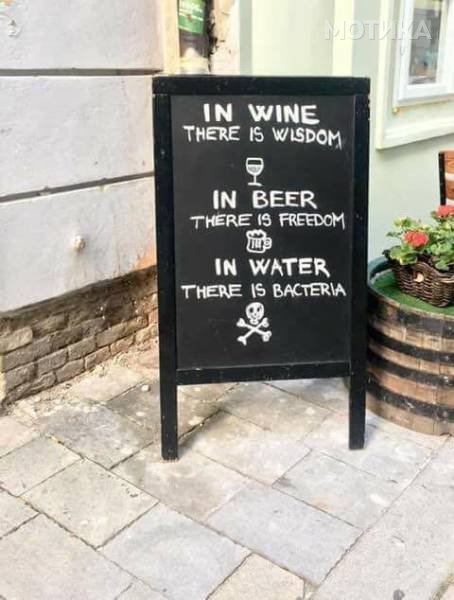 МОТИКА
IN WINE
THERE IS WISDOM
IN BEER
THERE IS FREEDOM
IN WATER
THERE IS BACTERIA